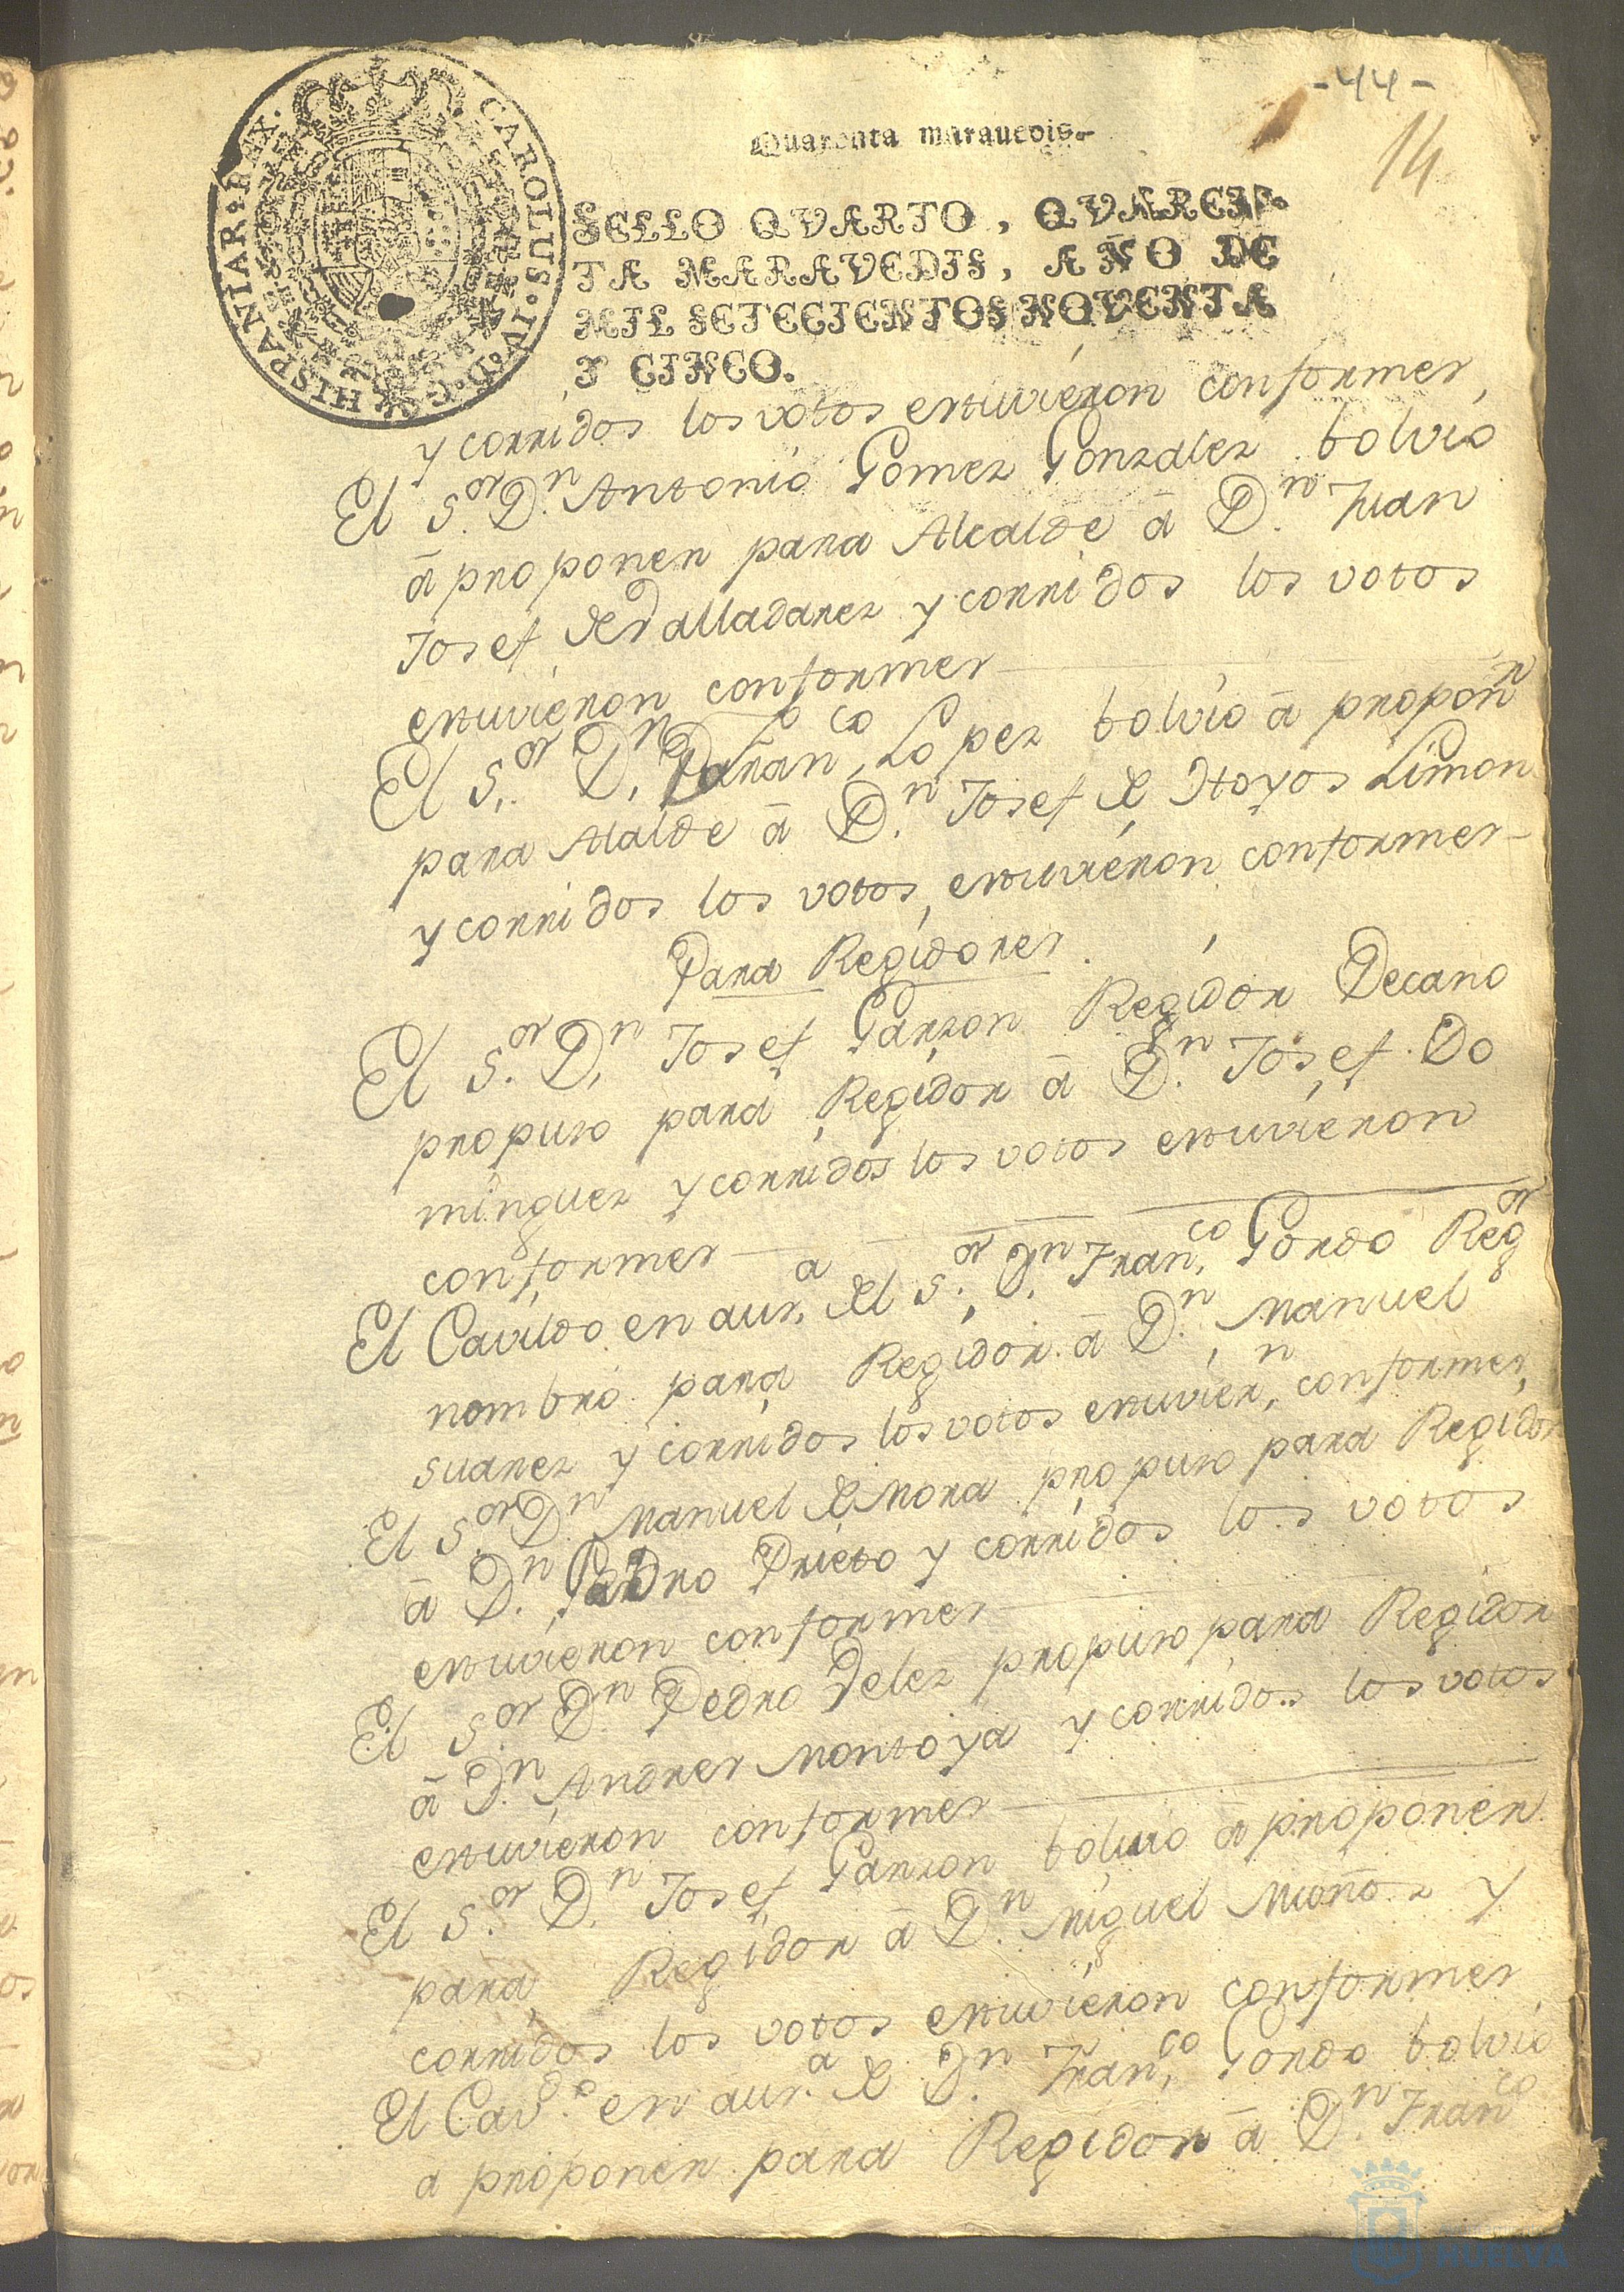 -44-
14
Quarenta marauedis.
CAROLUS·IV·D·G· HISPANIAR·REX·
SELLO QVARTO, QVAREN-
TA MARAVEDIS, AÑO DE
MIL SETECIENTOS NOVENTA
Y CINCO.
y corridos los votos estuvieron conformes,
El S.or D.n Antonio Gomez Gonzalez bolvio
á proponer para Alcalde á D.n Juan
Josef de Valladares y corridos los votos
estuvieron conformes
El S.or D.n Fran.co Lopez bolvio á propon.r
para Alalde á D.n Josef de Hoyos Limon
y corridos los votos, estuvieron conformes
Para Regidores.
El S.or D.n Josef Garzon Regidor Decano
propuso para Regidor á D.n Josef Do
minguez y corridos los votos estuvieron
conformes
El Cavildo en aus.a del S.or D.n Fran.co Gordo Reg.or
nombró para Regidor á D.n Manuel
Suarez y corridos los votos estuvier.n conformes
El S.or D.n Manuel de Mora propuso para Regidor
á D.n Pedro Prieto y corridos los votos
estuvieron conformes
El S.or D.n Pedro Velez propuso para Regidor
á D.n Andres Montoya y corridos los votos
estuvieron conformes
El S.or D.n Josef Garzon bolvio á proponer
para Regidor á D.n Miguel Muñoz y
corridos los votos estuvieron conformes
El Cav.do en aus.a de D.n Fran.co Gordo bolvio
a proponer para Regidor á D.n Fran.co
HUELVA